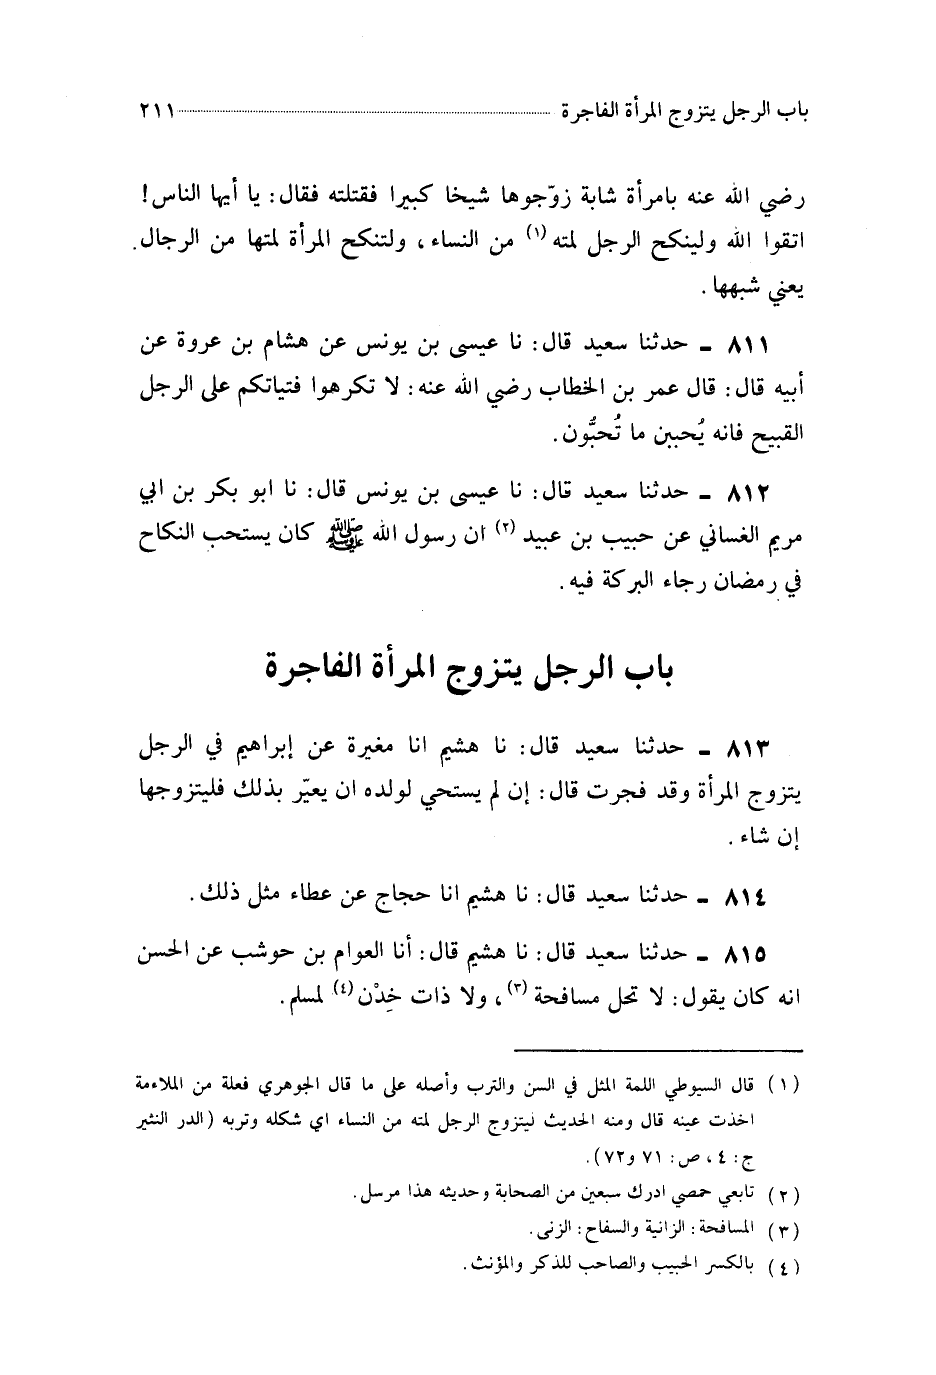 باب الرجل يتزوج المرأة الفاجرة ٢١١
رضي الله عنه بامرأة شابة زوّجوها شيخا كبيرا فقتلته فقال: يا أيها الناس!
اتقوا الله ولينكح الرجل لمته (١) من النساء، ولتنكح المرأة لمتها من الرجال.
يعني شبهها.
٨١١ ـ حدثنا سعيد قال: نا عيسى بن يونس عن هشام بن عروة عن
أبيه قال: قال عمر بن الخطاب رضي الله عنه: لا تكرهوا فتياتكم على الرجل
القبيح فانه يُحببن ما تُحبُّون.
٨١٢ ـ حدثنا سعيد قال: نا عيسى بن يونس قال: نا ابو بكر بن ابي
مريم الغساني عن حبيب بن عبيد (٢) ان رسول الله ﷺ كان يستحب النكاح
في رمضان رجاء البركة فيه.
باب الرجل يتزوج المرأة الفاجرة
٨١٣ ـ حدثنا سعيد قال: نا هشيم انا مغيرة عن إبراهيم في الرجل
يتزوج المرأة وقد فجرت قال: إن لم يستحي لولده ان يعيّر بذلك فليتزوجها
إن شاء.
٨١٤ ـ حدثنا سعيد قال: نا هشيم انا حجاج عن عطاء مثل ذلك.
٨١٥ ـ حدثنا سعيد قال: نا هشيم قال: أنا العوام بن حوشب عن الحسن
انه كان يقول: لا تحل مسافحة (٣)، ولا ذات خِدْن (٤) لمسلم.
(١) قال السيوطي اللمة المثل في السن والترب وأصله على ما قال الجوهري فعلة من الملاءمة
اخذت عينه قال ومنه الحديث ليتزوج الرجل لمته من النساء اي شكله وتربه (الدر النثير
ج: ٤، ص: ٧١ و٧٢).
(٢) تابعي حمصي ادرك سبعين من الصحابة وحديثه هذا مرسل.
(٣) المسافحة: الزانية والسفاح: الزنى.
(٤) بالكسر الحبيب والصاحب للذكر والمؤنث.